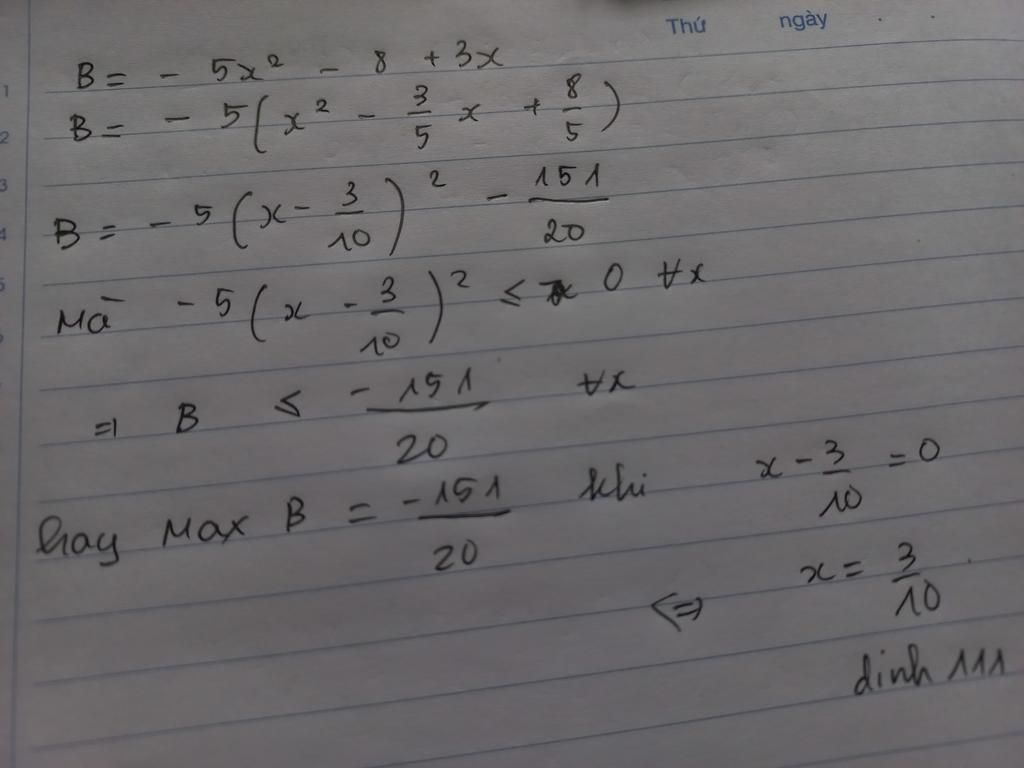 Thứ ngày
B = - 5x² - 8 + 3x
B = - 5(x² - 3/5 x + 8/5)
B = - 5(x - 3/10)² - 151/20
Mà - 5(x - 3/10)² ≤ 0 ∀x
=> B ≤ -151/20 ∀x
hay Max B = -151/20 khi x - 3/10 = 0
<=> x = 3/10
dinh 111